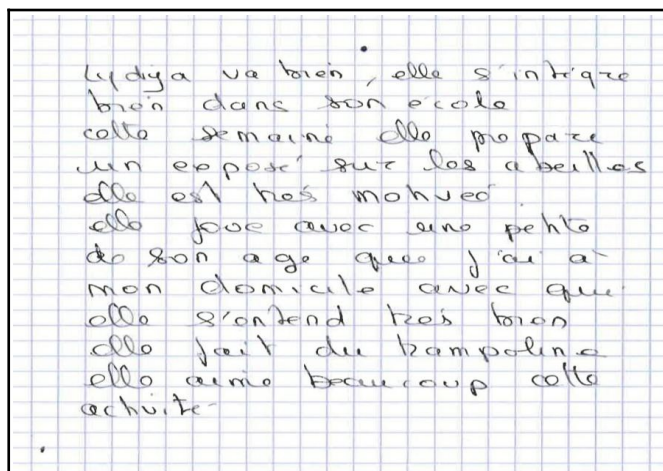 Lydiya va bien, elle s'intègre
bien dans son école
cette semaine elle prepare
un exposé sur les abeilles
elle est très motivée
elle joue avec une petite
de son age que j'ai à
mon domicile avec qui
elle s'entend très bien
elle fait du trampoline
elle aime beaucoup cette
activité